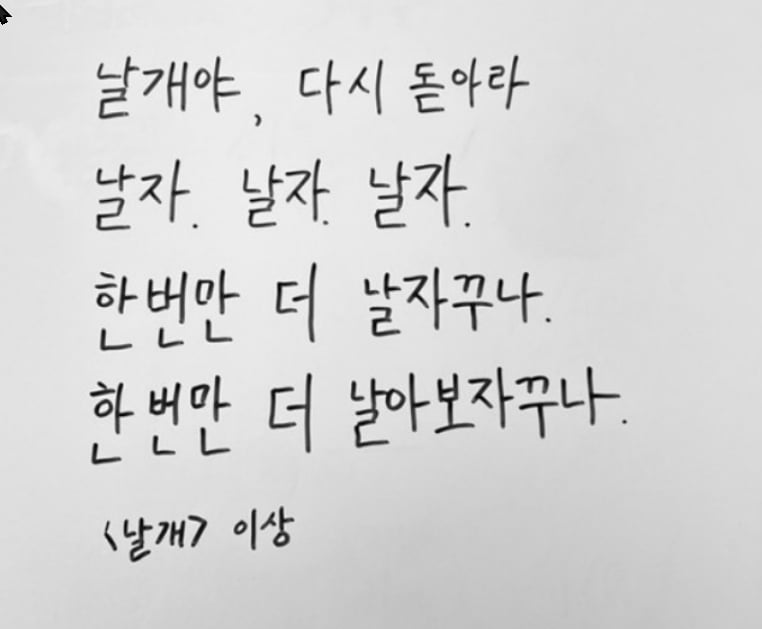 날개야, 다시 돋아라
날자. 날자. 날자.
한번만 더 날자꾸나.
한번만 더 날아보자꾸나.
<날개> 이상